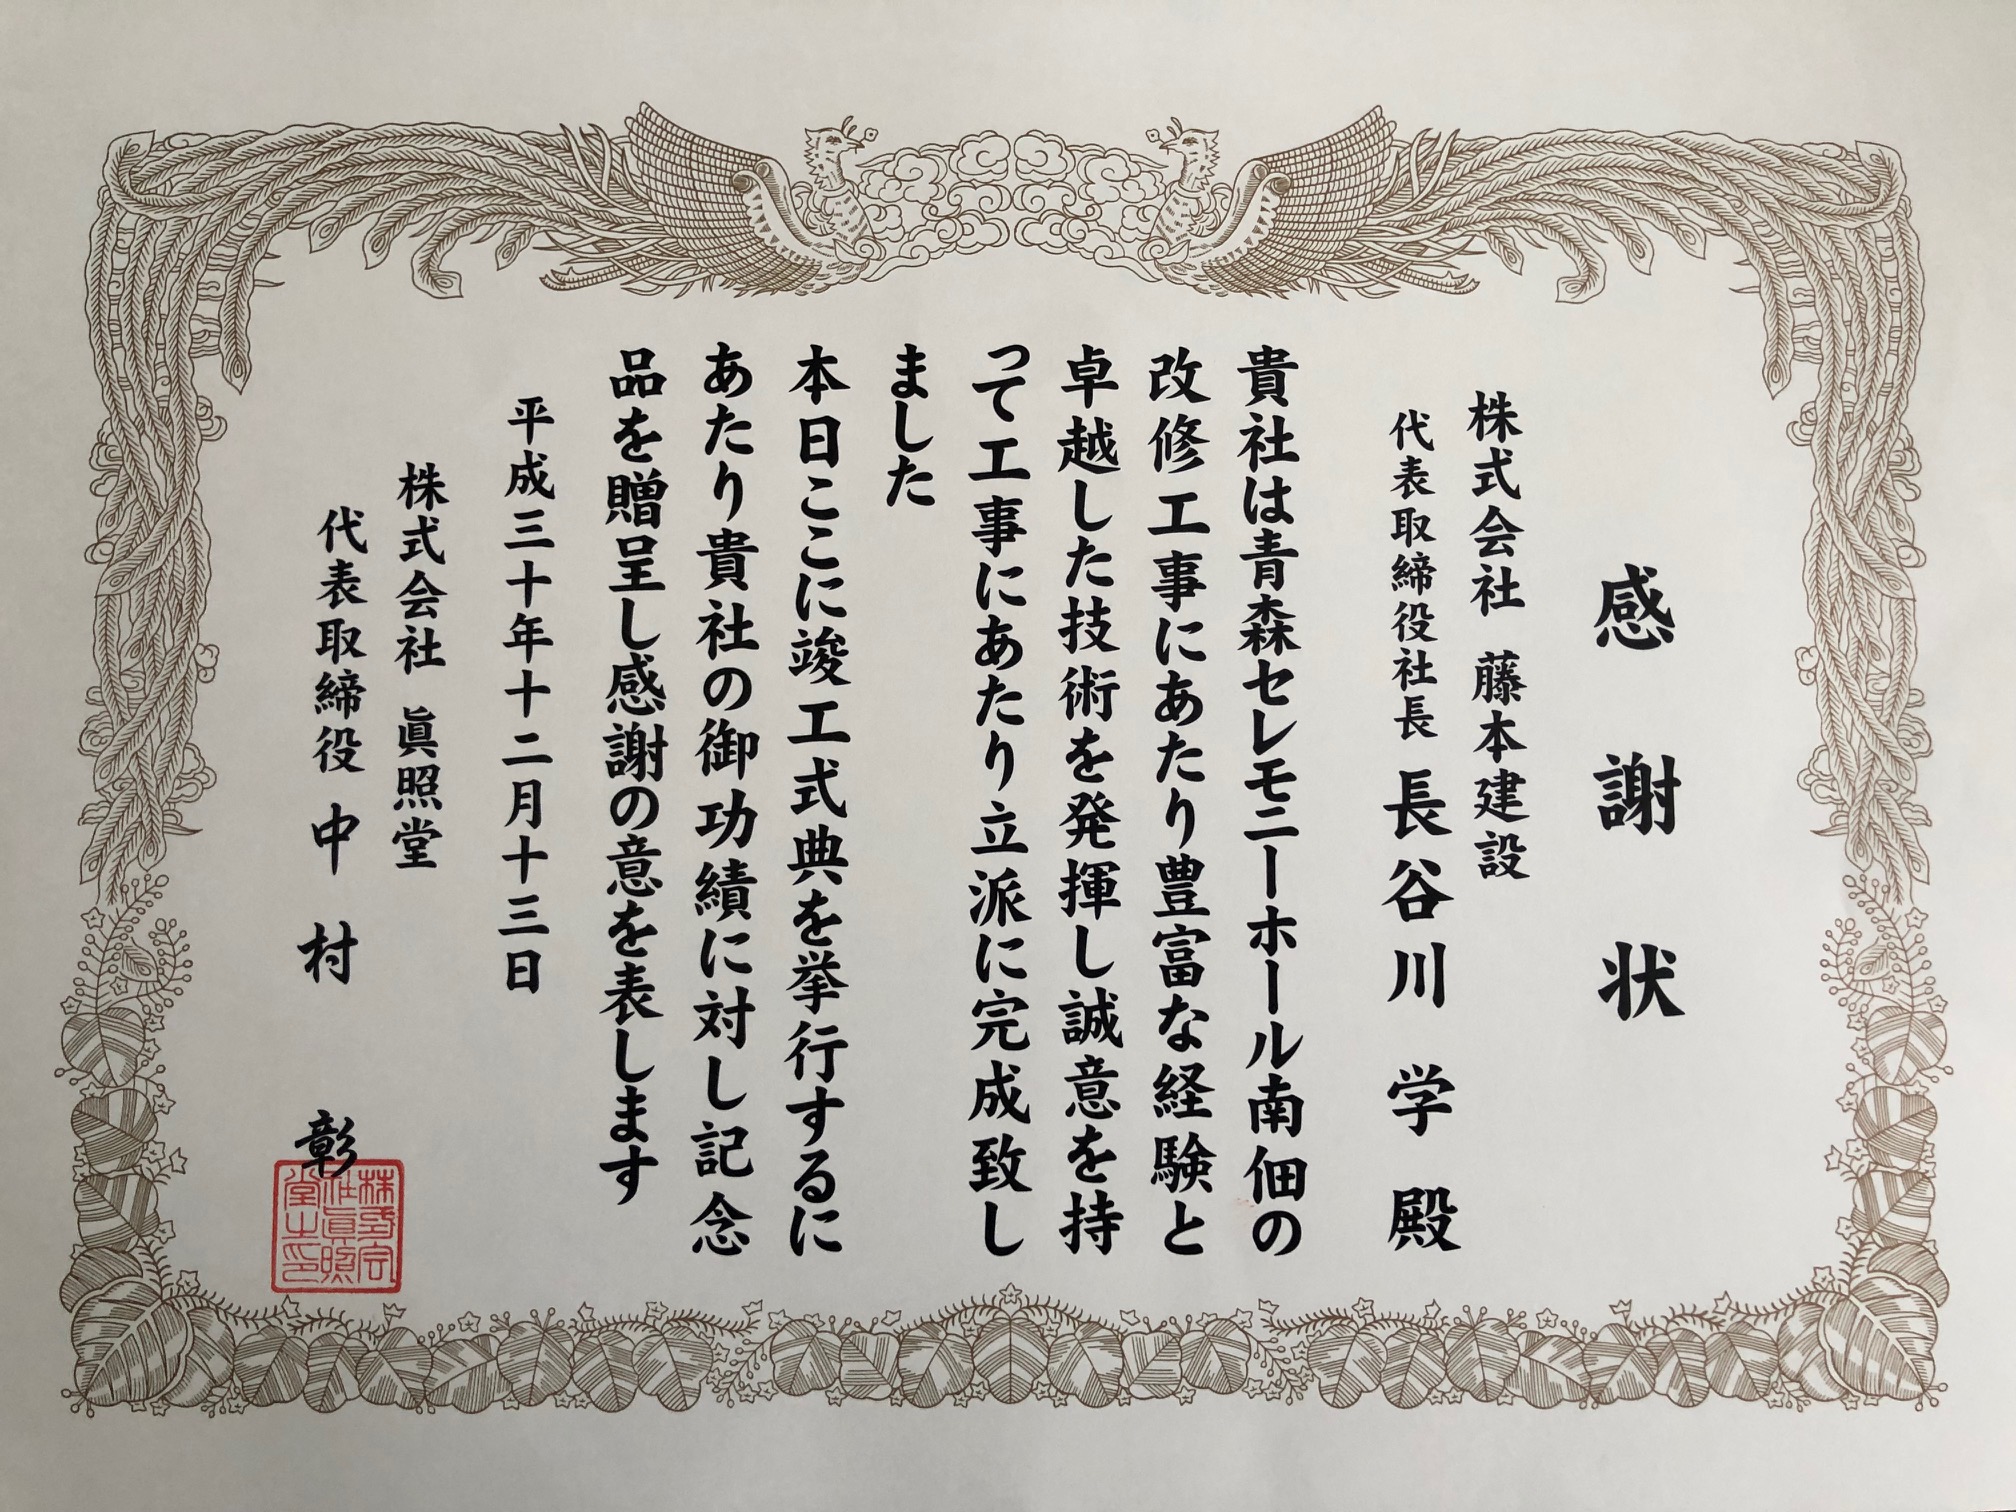 感謝状
株式会社 藤本建設
代表取締役社長 長谷川 学 殿
貴社は青森セレモニーホール南佃の
改修工事にあたり豊富な経験と
卓越した技術を発揮し誠意を持
って工事にあたり立派に完成致し
ました
本日ここに竣工式典を挙行するに
あたり貴社の御功績に対し記念
品を贈呈し感謝の意を表します
平成三十年十二月十三日
株式会社 眞照堂
代表取締役 中村 彰
株式会
社眞照
堂之印